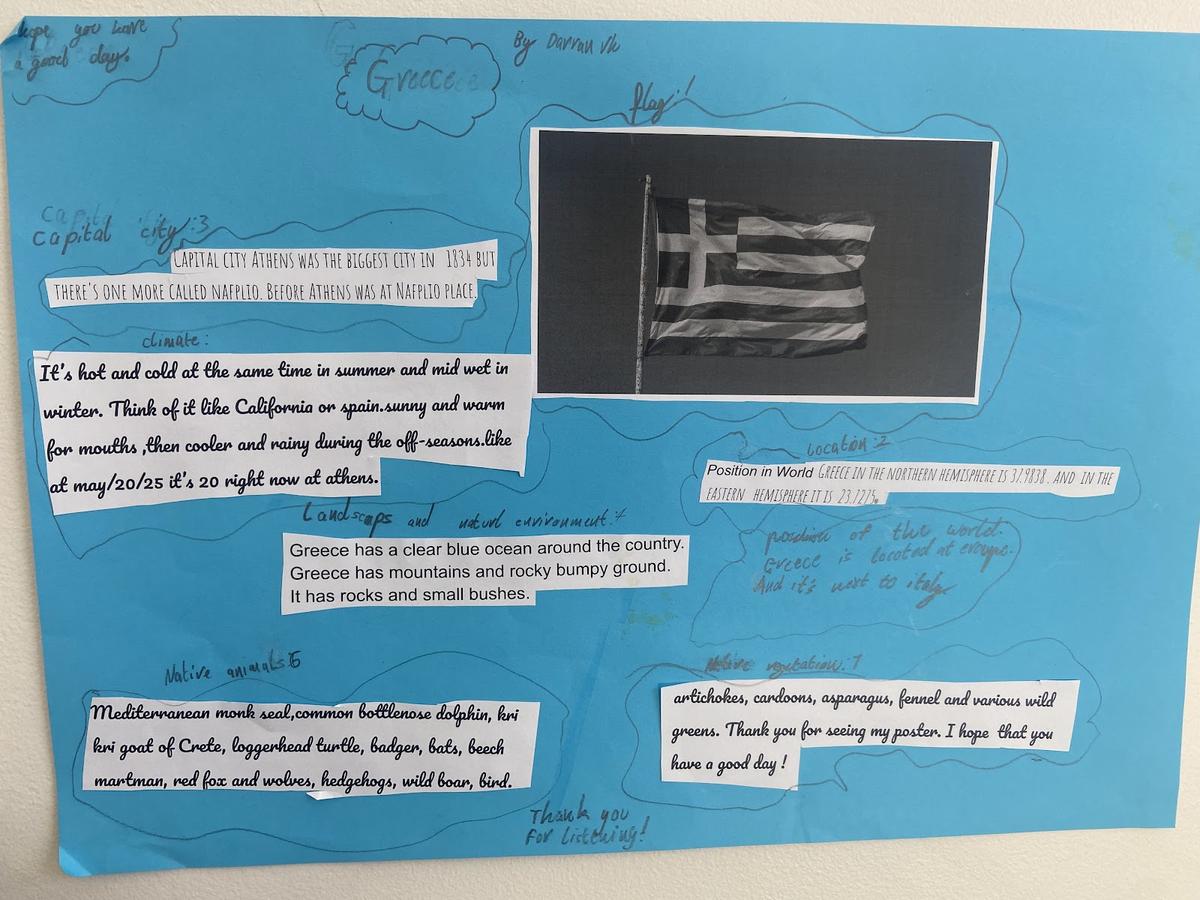 hope you have
a good day.
Greece
By Darran
flag!
Capital city:3
CAPITAL CITY ATHENS WAS THE BIGGEST CITY IN 1834 BUT
THERE'S ONE MORE CALLED NAFPLIO. BEFORE ATHENS WAS AT NAFPLIO PLACE.
climate:
It's hot and cold at the same time in summer and mid wet in
winter. Think of it like California or spain.sunny and warm
for mouths ,then cooler and rainy during the off-seasons.like
at may/20/25 it's 20 right now at athens.
Location:2
Position in World GREECE IN THE NORTHERN HEMISPHERE IS 37.9838. AND IN THE
EASTERN HEMISPHERE IT IS 23.7275.
position of the world.
Greece is located at
And it's next to italy
Landscaps and naturl environment:
Greece has a clear blue ocean around the country.
Greece has mountains and rocky bumpy ground.
It has rocks and small bushes.
Native animals:
Mediterranean monk seal,common bottlenose dolphin, kri
kri goat of Crete, loggerhead turtle, badger, bats, beech
martman, red fox and wolves, hedgehogs, wild boar, bird.
Native
artichokes, cardoons, asparagus, fennel and various wild
greens. Thank you for seeing my poster. I hope that you
have a good day !
Thank you
For listening!